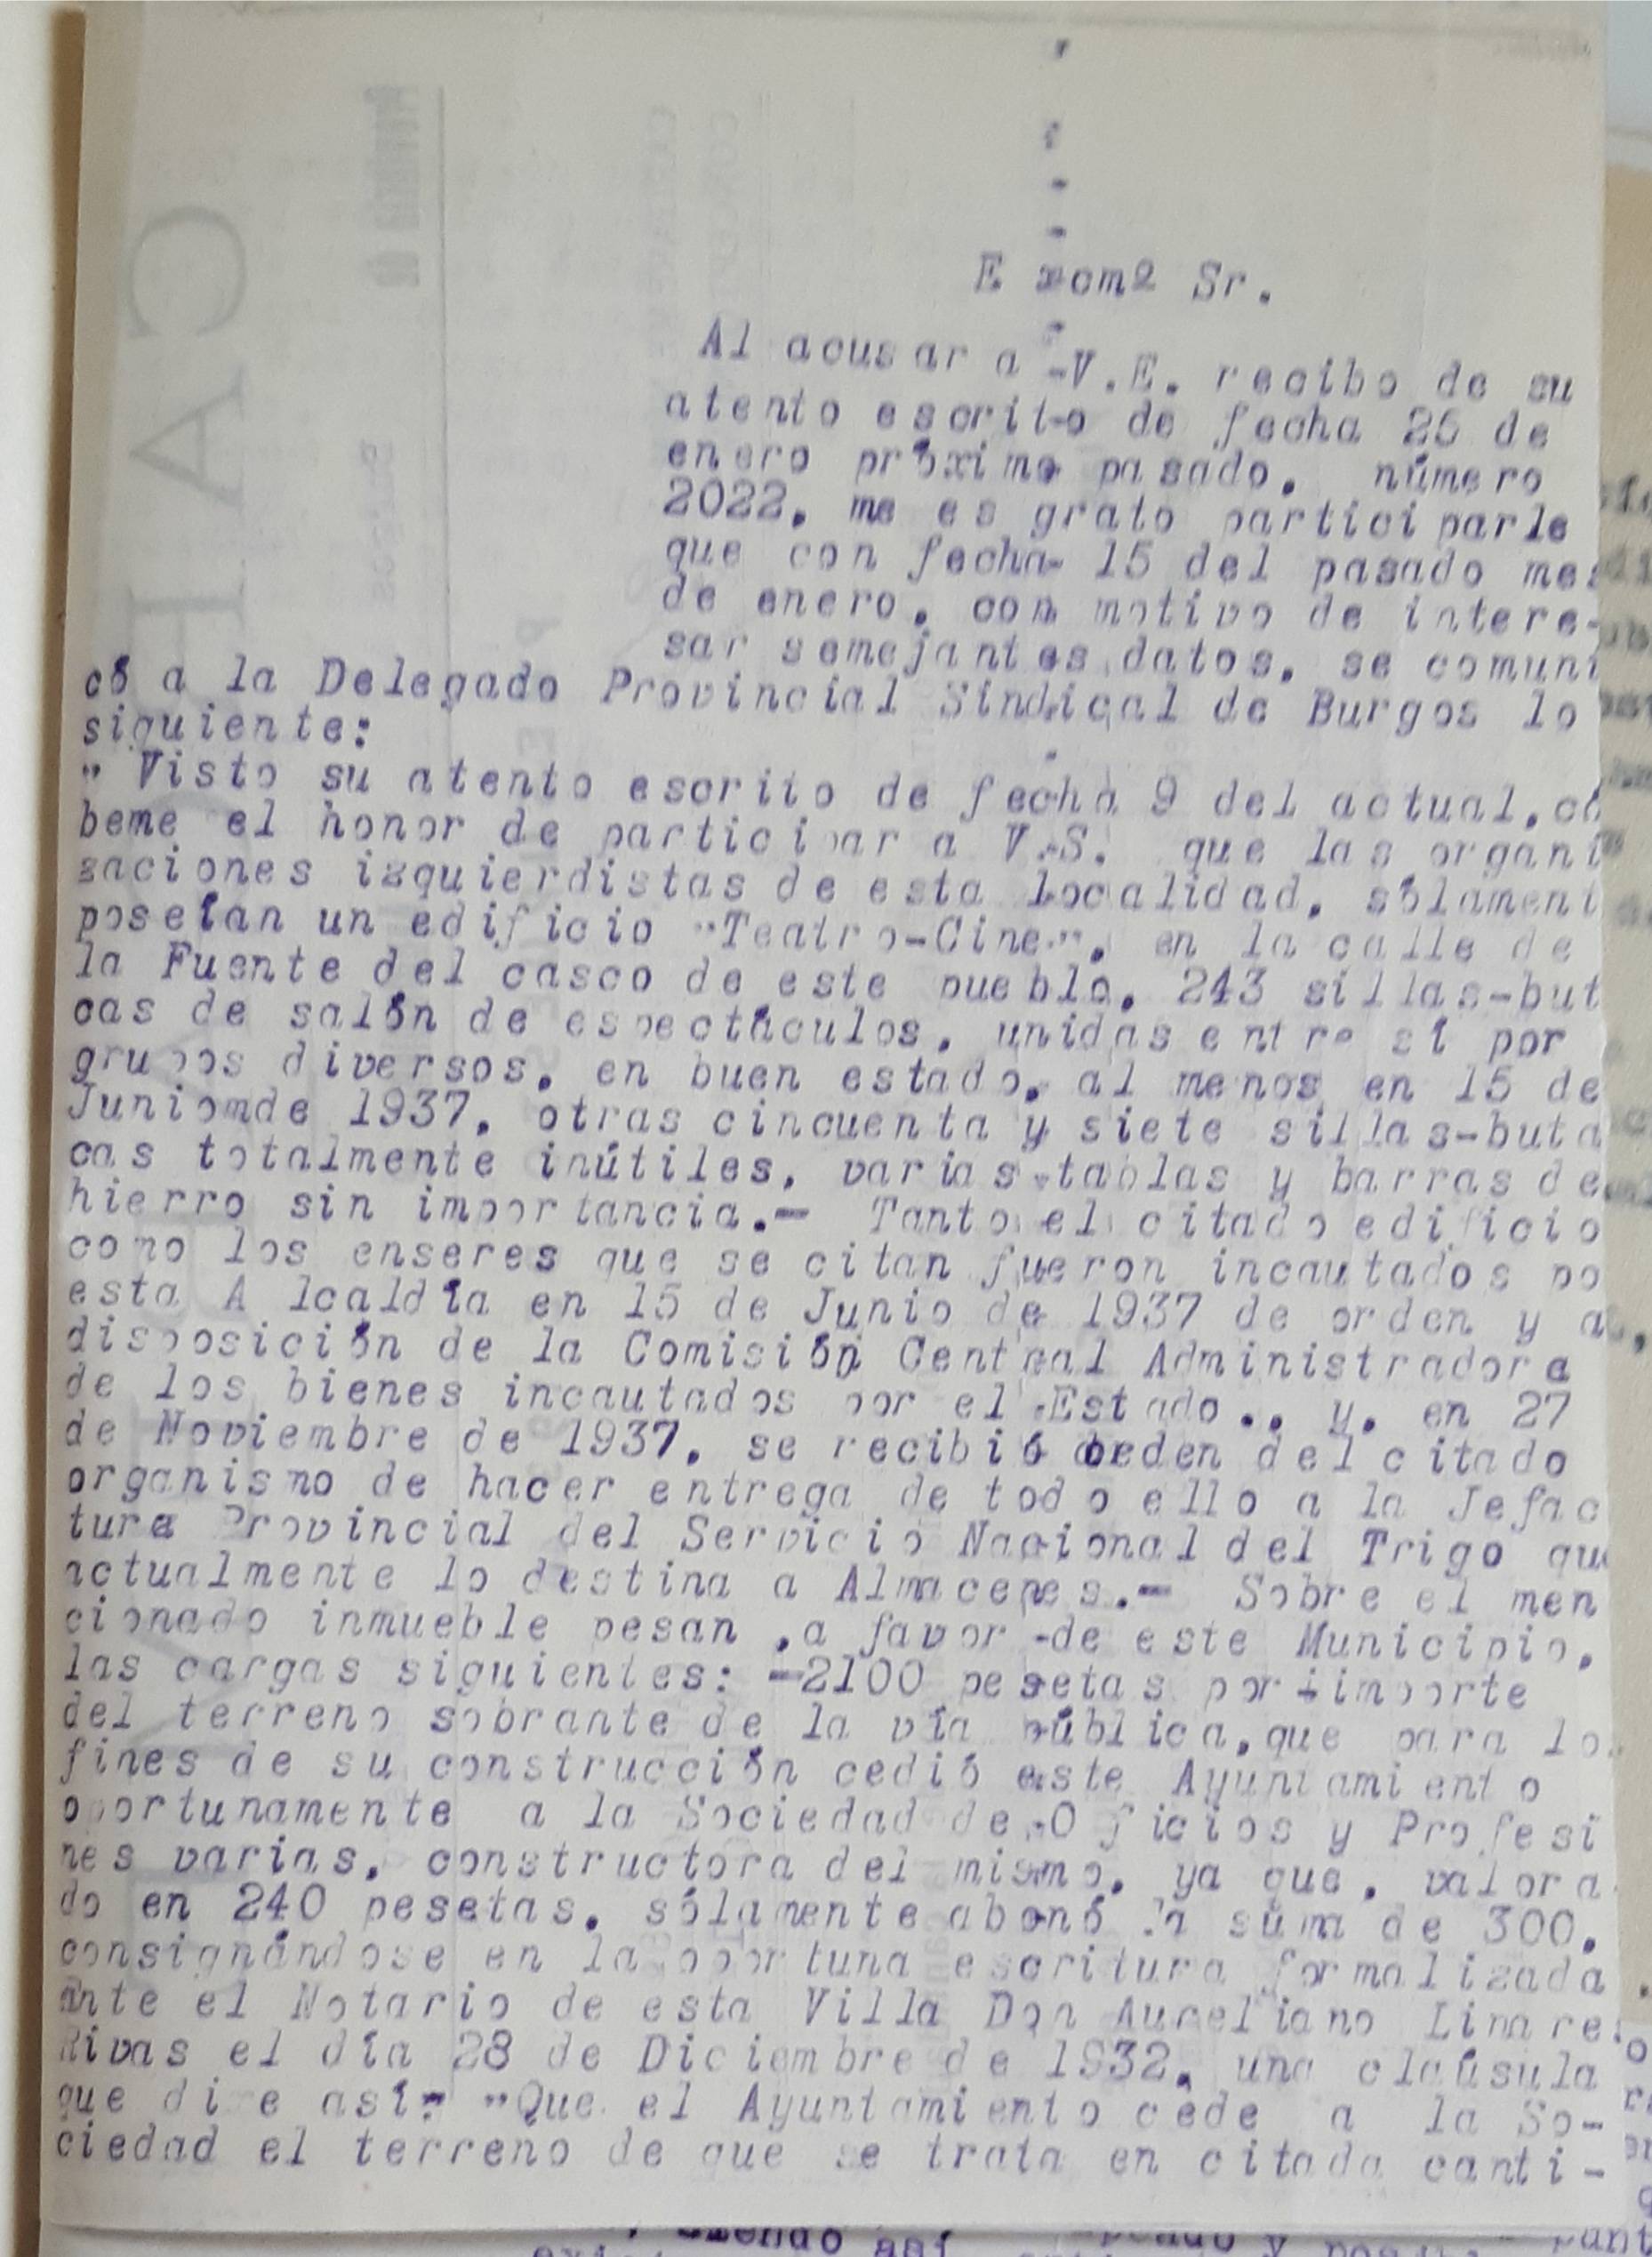 E xcmº Sr.
Al acusar a -V.E. recibo de su
atento escrito de fecha 26 de
enero próximo pasado, número
2022, me es grato participarle
que con fecha- 15 del pasado mes
de enero, con motivo de intere-
sar semejantes datos, se comuni
có a la Delegado Provincial Sindical de Burgos lo
siguiente:
" Visto su atento escrito de fecha 9 del actual,cá
beme el honor de participar a V.S. que las organi
zaciones izquierdistas de esta localidad, sólament
poseían un edificio "Teatro-Cine", en la calle de
la Fuente del casco de este pueblo, 243 sillas-but
cas de salón de espectáculos, unidas entre sí por
grupos diversos, en buen estado, al menos en 15 de
Juniomde 1937, otras cincuenta y siete sillas-buta
cas totalmente inútiles, varias tablas y barras de
hierro sin importancia.- Tanto el citado edificio
como los enseres que se citan fueron incautados po
esta A lcaldía en 15 de Junio de 1937 de orden y a
disposición de la Comisión Central Administradora
de los bienes incautados por el Estado.. y. en 27
de Noviembre de 1937, se recibió orden del citado
organismo de hacer entrega de todo ello a la Jefac
tura Provincial del Servicio Nacional del Trigo que
actualmente lo destina a Almacenes.- Sobre el men
cionado inmueble pesan ,a favor -de este Municipio,
las cargas siguientes: -2100 pesetas por importe
del terreno sobrante de la vía pública,que para lo
fines de su construcción cedió este Ayuntamiento
oportunamente a la Sociedad de O ficios y Profesi
nes varias, constructora del mismo, ya que, valora
do en 240 pesetas, sólamente abonó la suma de 300,
consignándose en la oportuna escritura formalizada
ante el Notario de esta Villa Don Aureliano Linare
Rivas el día 28 de Diciembre de 1932, una claúsula
que di e así: "Que el Ayuntamiento cede a la So-
ciedad el terreno de que se trata en citada canti-